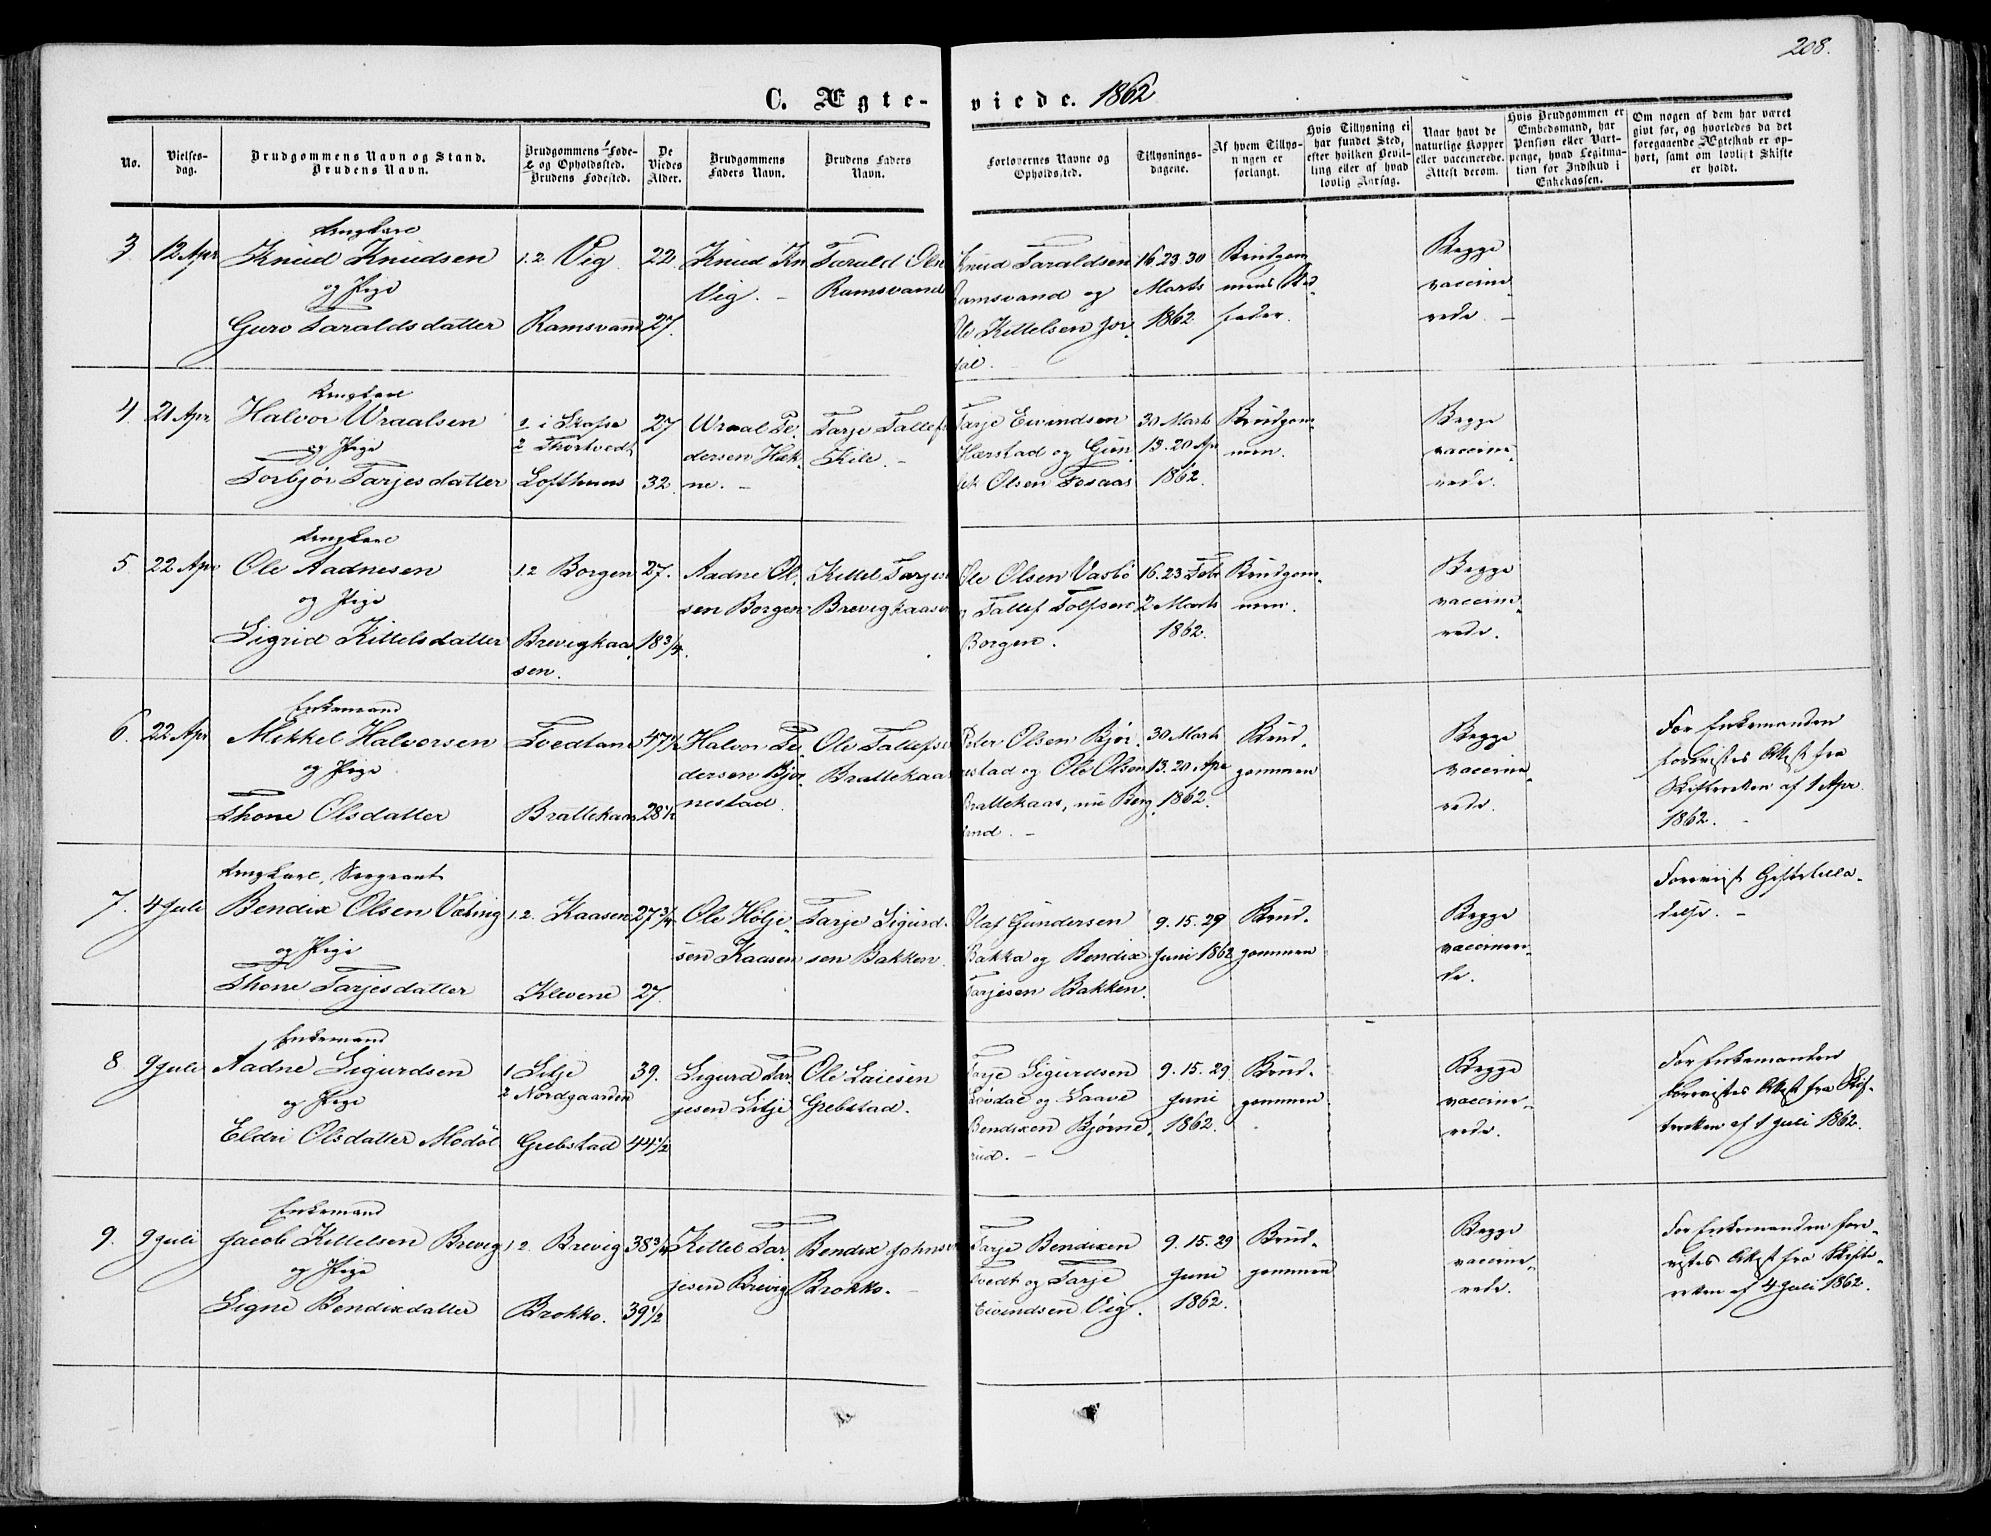 208.
C. Ægte-viede. 1862
No.
Vielses-dag.
Brudgommens Navn og Stand. Brudens Navn.
Brudgommens 1 Føde- 2 og Opholdssted. Brudens Fødested.
De Viedes Alder.
Brudgommens Faders Navn.
Brudens Faders Navn.
Forlovernes Navne og Opholdssted.
Tillysnings-dagene.
Af hvem Tillysningen er forlangt.
Hvis Tillysning ei har fundet Sted, efter hvilken Bevilling eller af hvad lovlig Aarsag.
Naar havt de naturlige Kopper eller vaccinerede. Attest derom.
Hvis Brudgommen er Embedsmand, har Pension eller Vartpenge, hvad Legitmation for Indskud i Enkekassen.
Om nogen af dem har været givt for, og hvorledes da det foregaaende Ægteskab er ophørt, samt om lovligt Skifte er holdt.
3
12 Apr
Ungkarl
Knud Knudsen
og Pige
Guro Taraldsdatter
1.2 Vig
Ramsvand
22
27.
Knud Kn
Vig. -
Tarald Ols
Ramsvand
Knud Taraldsen
Ramsvand og
Ole Kittelsen Jor
dal.
16. 23. 30
Marts
1862.
Brudgom
mens Sted
fader.
Begge
vaccine
rede. -
4.
21 Apr
Ungkarl
Halvor Wraalsen
og Pige
Torbjør Tarjesdatter
1. i Skafse
2 Thortvedt
Lofthuus
27
32.
Wraal Pe.
dersen Hek.
ne. -
Tarje Tallefs
Kile. -
Tarje Eivendsen
Hærstad og Gun.
Olsen Fosaas
30 Marts
13. 20 Apr
1862.
Brudgom-
men.
Begge
vaccine-
rede.
5
22 Apr
Ungkarl
Ole Aadnesen
og Pige
Sigrid Kittelsdatter
1.2 Borgen
Brevigkaa
sen.
27.
18 3/4.
Aadne Ol.
sen Borgen
Kittel Tarjes
Brevigkaasen
Ole Olsen Vasbø
og Tallef Tolfsen
Borgen.
16. 23 Febr
2 Marts
1862.
Brudgom-
men.
Begge
vaccine-
rede.
6.
22 Apr
Enkemand
Mikkel Halvorsen
og Pige
Thone Olsdatter
Tvedtane
Brattekaas
47 1/2
28 1/2
Halvor Pe.
dersen Bjør
nestad.
Ole Tallefse
Brattekaas
Peter Olsen Bjør.
nestad og Ole Olsen
Brattekaas, nu Berg
lund. -
30 Marts
13. 20 Apr
1862.
Brud-
gommen
Begge
vaccine-
rede.
For Enkemanden
forevistes Attest fra
Skifteretten af 1 Apr.
1862. -
7.
4 Juli
Ungkarl, Sergeant
Bendix Olsen Valnig
og Pige
Thone Tarjesdatter
1.2. Kaasen
Klevene
27 3/4
27.
Ole Hølje.
sen Kaasen
Tarje Sigurd.
sen Bakken.
Olaf Gundersen
Bakka og Bendix
Tarjesen Bakken.
9. 15. 29
Juni 1862
Brud-
gommen
Begge
vaccinere-
de.
Forevist Giftetilla-
delse. -
8
9 Juli
Enkemand
Aadne Sigurdsen
og Pige
Eldri Olsdatter Modøl
1 Litje
2 Nordgaarden
Grebstad
39.
44 1/2
Sigurd Tar.
jesen Litje
Ole Laiesen
Grebstad.
Tarje Sigurdsen
Løvdal og Laave
Bendixen Bjørne.
rud. -
9. 15. 29
Juni
1862.
Brud-
gommen
Begge
vaccine-
rede.
For Enkemanden
forevistes Attest fra Skif-
teretten af 1 Juli 1862.
9.
9 Juli
Enkemand
Jacob Kittelsen Brevig
og Pige
Signe Bendixdatter
1 2. Brevig
Brokko.
38 3/4
39 1/2
Kittel Tar.
jesen Brevig
Bendix Johnse
Brokko. -
Tarje Bendixen
Tvedt og Tarje
Eivindsen Vig.
9. 15. 29
Juni
1862.
Brud-
gommen
Begge
vaccine-
rede.
For Enkemanden fore-
vistes Attest fra Skifte-
retten af 4 Juli 1862.